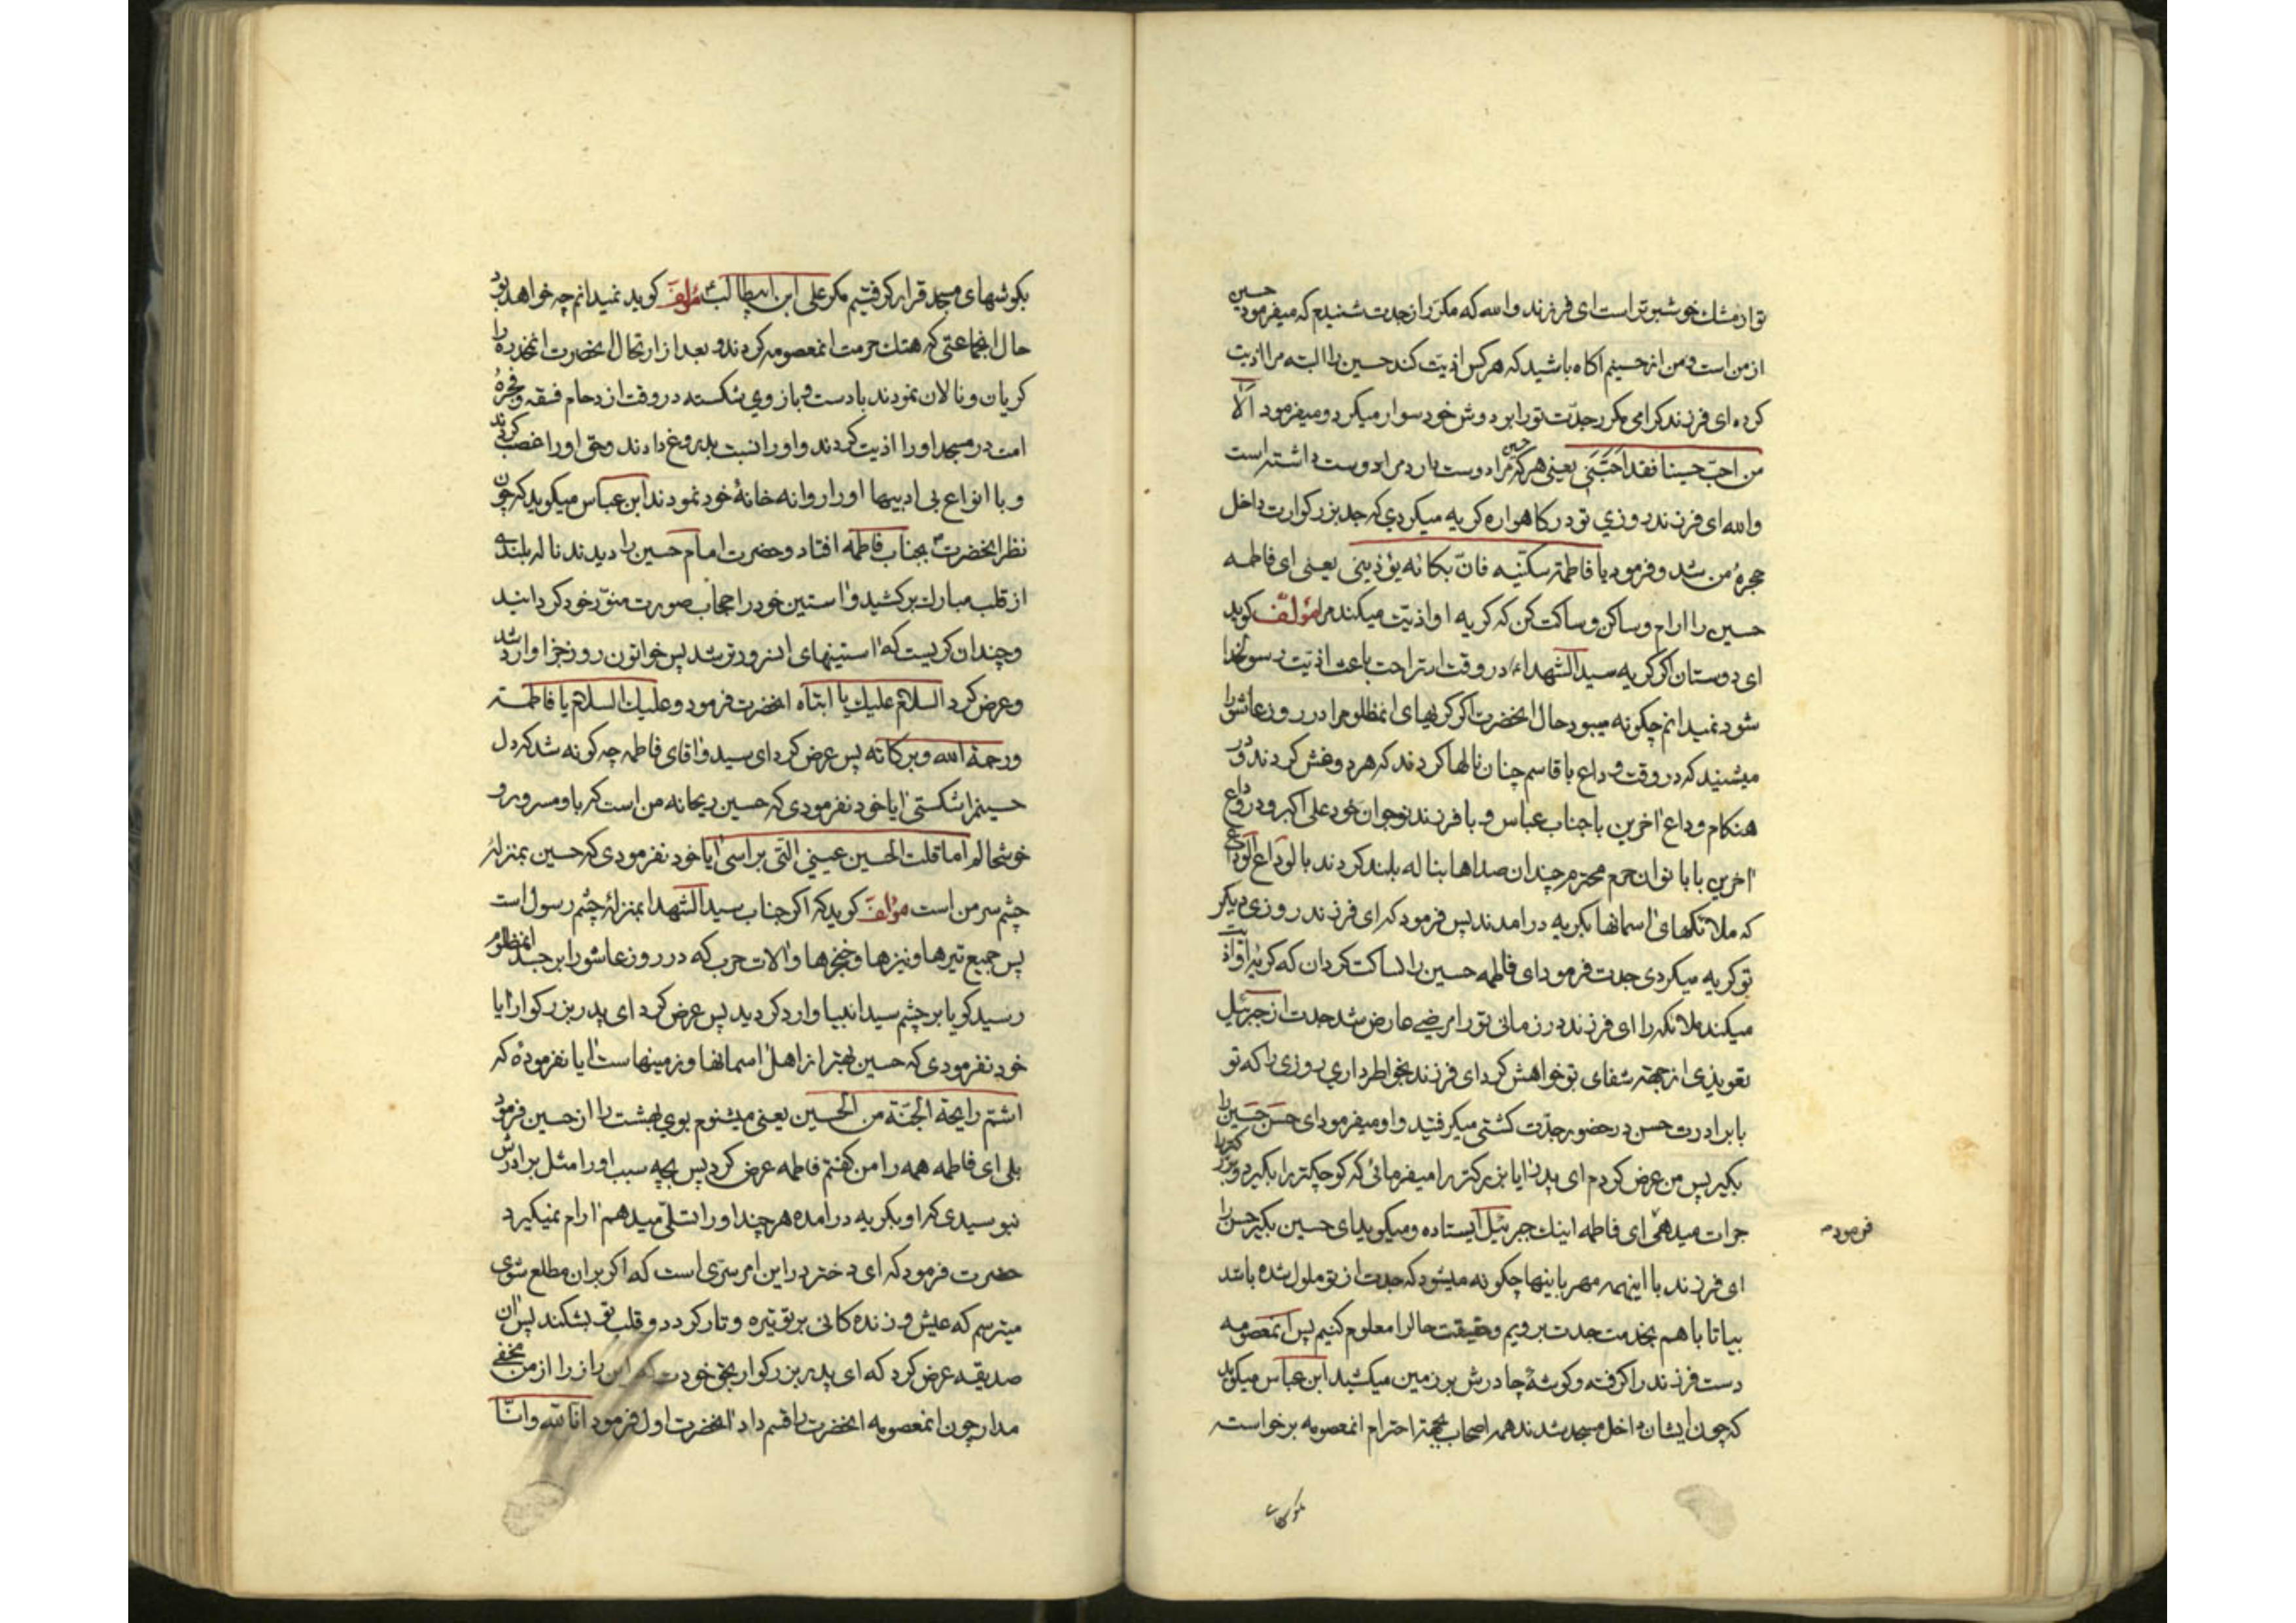 تو از مشك خوشبوتر است ای فرزند والله که مکرر از جدت شنیدم که میفرمود حسین
از من است و من از حسینم اکاه باشید که هر کس اذیت کند حسین را البته مرا اذیت
کرده ای فرزند کرامی مکرر جدت تو را بر دوش خود سوار میکرد و میفرمود الا
من احب حسینا فقد احبنی یعنی هر که حسین را دوست دارد مرا دوست داشته است
والله ای فرزند روزی تو در کاهواره کریه میکردی که جد بزرکوارت داخل
حجرهٔ من شد و فرمود یا فاطمة سکتیه فان بکائه یؤذینی یعنی ای فاطمه
حسین را ارام و ساکن و ساکت کن که کریه او اذیت میکند مرا مؤلف کوید
ای دوستان اکر کریه سید الشهداء در وقت استراحت باعث اذیت رسولخدا
شود نمیدانم چکونه میبود حال انحضرت اکر کریهای انمظلوم را در روز عاشورا
میشنید که در وقت وداع با قاسم چنان نالها کردند که هر دو غش کردند و در
هنکام وداع اخرین با جناب عباس و با فرزند نوجوان خود علی اکبر و در وداع
اخرین با بانوان حرم محترم چندان صداها بناله بلند کردند بالوداع الوداع
که ملائکهای اسمانها بکریه در امدند پس فرمود که ای فرزند روزی دیکر
تو کریه میکردی جدت فرمود ای فاطمه حسین را ساکت کردان که کریهٔ او اذیت
میکند ملائکه را ای فرزند در زمانی تو را مرضی عارض شد جدت از جبرئیل
تعویذی از جهة شفای تو خواهش کرد ای فرزند بخواطر داری روزی را که تو
با برادرت حسن در حضور جدت کشتی میکرفتید و او میفرمود ای حسن حسین را
بکیر پس من عرض کردم ای پدر ایا بزرکتر را میفرمائی که کوچکتر را بکیرد و بزرکتر را
جرات میدهی ای فاطمه اینك جبرئیل ایستاده و میکوید ای حسین بکیر حسن را
فرمود
ای فرزند با اینهمه مهربانیها چکونه میشود که جدت از تو ملول شده باشد
بیا تا با هم بخدمت جدت برویم و حقیقت حال را معلوم کنیم پس انمعصومه
دست فرزند را کرفته و کوشهٔ چادرش بر زمین میکشید ابن عباس میکوید
که چون ایشان داخل مسجد شدند همه اصحاب بجهة احترام انمعصومه برخواسته
بکوشهای
بکوشهای مسجد قرار کرفتیم مکر علی ابن ابیطالب مؤلف کوید نمیدانم چه خواهد بود
حال انجماعتی که هتك حرمت انمعصومه کردند و بعد از ارتحال انحضرت انمخدره را
کریان و نالان نمودند با دست و بازوی شکسته در وقت ازدحام فسقه و فجرهٔ
امت در مسجد او را اذیت کردند و او را نسبت بدروغ دادند و حق او را غصب کردند
و با انواع بی ادبیها او را روانه خانهٔ خود نمودند ابن عباس میکوید که چون
نظر انحضرت بجناب فاطمه افتاد و حضرت امام حسین را دیدند ناله بلندی
از قلب مبارك برکشید و استین خود را حجاب صورت منور خود کردانید
و چندان کریست که استینهای انسرور تر شد پس خواتون روز جزا وارد شد
و عرض کرد السلام علیك یا ابتاه انحضرت فرمود و علیك السلام یا فاطمة
ورحمة الله وبرکاته پس عرض کرد ای سید و اقای فاطمه چه کونه شد که دل
حسینم را شکستی ایا خود نفرمودی که حسین ریحانه من است که باو مسرور و
خوشحالم اما قلت الحسین عینی التی براسی ایا خود نفرمودی که حسین بمنزلهٔ
چشم سر من است مؤلف کوید که اکر جناب سید الشهدا بمنزلهٔ چشم رسول است
پس جمیع تیرها و نیزها و خنجرها و الات حرب که در روز عاشورا بر جسد انمظلوم
رسید کویا بر چشم سید انبیا وارد کردید پس عرض کرد ای پدر بزرکوار ایا
خود نفرمودی که حسین بهتر از اهل اسمانها و زمینهاست ایا نفرمودهٔ که
اشتم رایحة الجنة من الحسین یعنی میشنوم بوی بهشت را از حسین فرمود
بلی ای فاطمه همه را من کفتم فاطمه عرض کرد پس بچه سبب او را مثل برادرش
نبوسیدی که او بکریه در امده هر چند او را تسلی میدهم ارام نمیکیرد
حضرت فرمود که ای دختر در این امر سری است که اکر بر ان مطلع شوی
میترسم که عیش و زنده کانی بر تو تیره و تار کردد و قلب تو بشکند پس ان
صدیقه عرض کرد که ای پدر بزرکوار بحق خودت که این راز را از من مخفی
مدار چون انمعصومه انحضرت را قسم داد انحضرت اول فرمود انا لله وانا